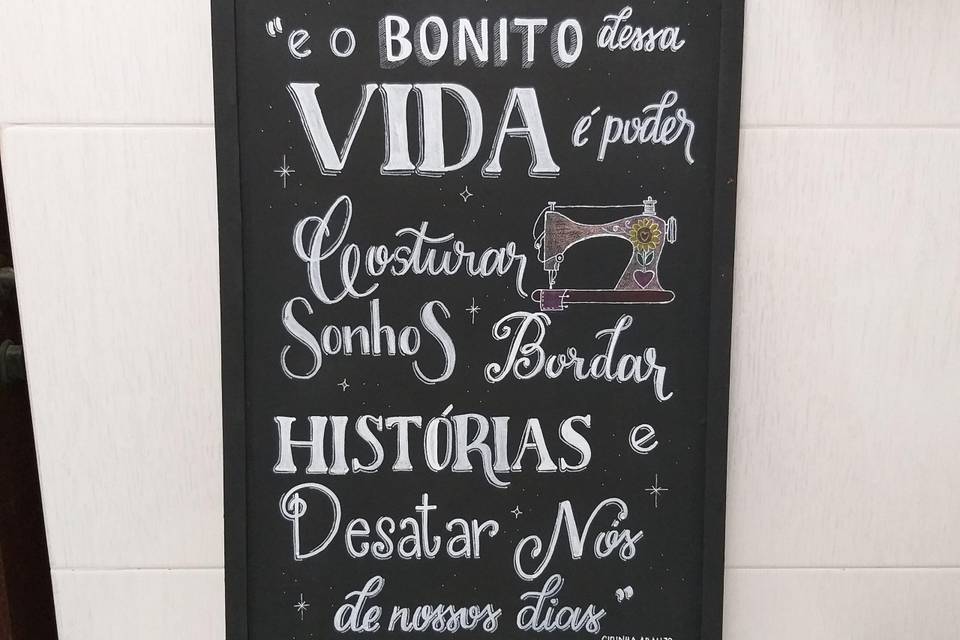 "e o BONITO dessa
VIDA é poder
Costurar
Sonhos Bordar
HISTÓRIAS e
Desatar Nós
de nossos dias"